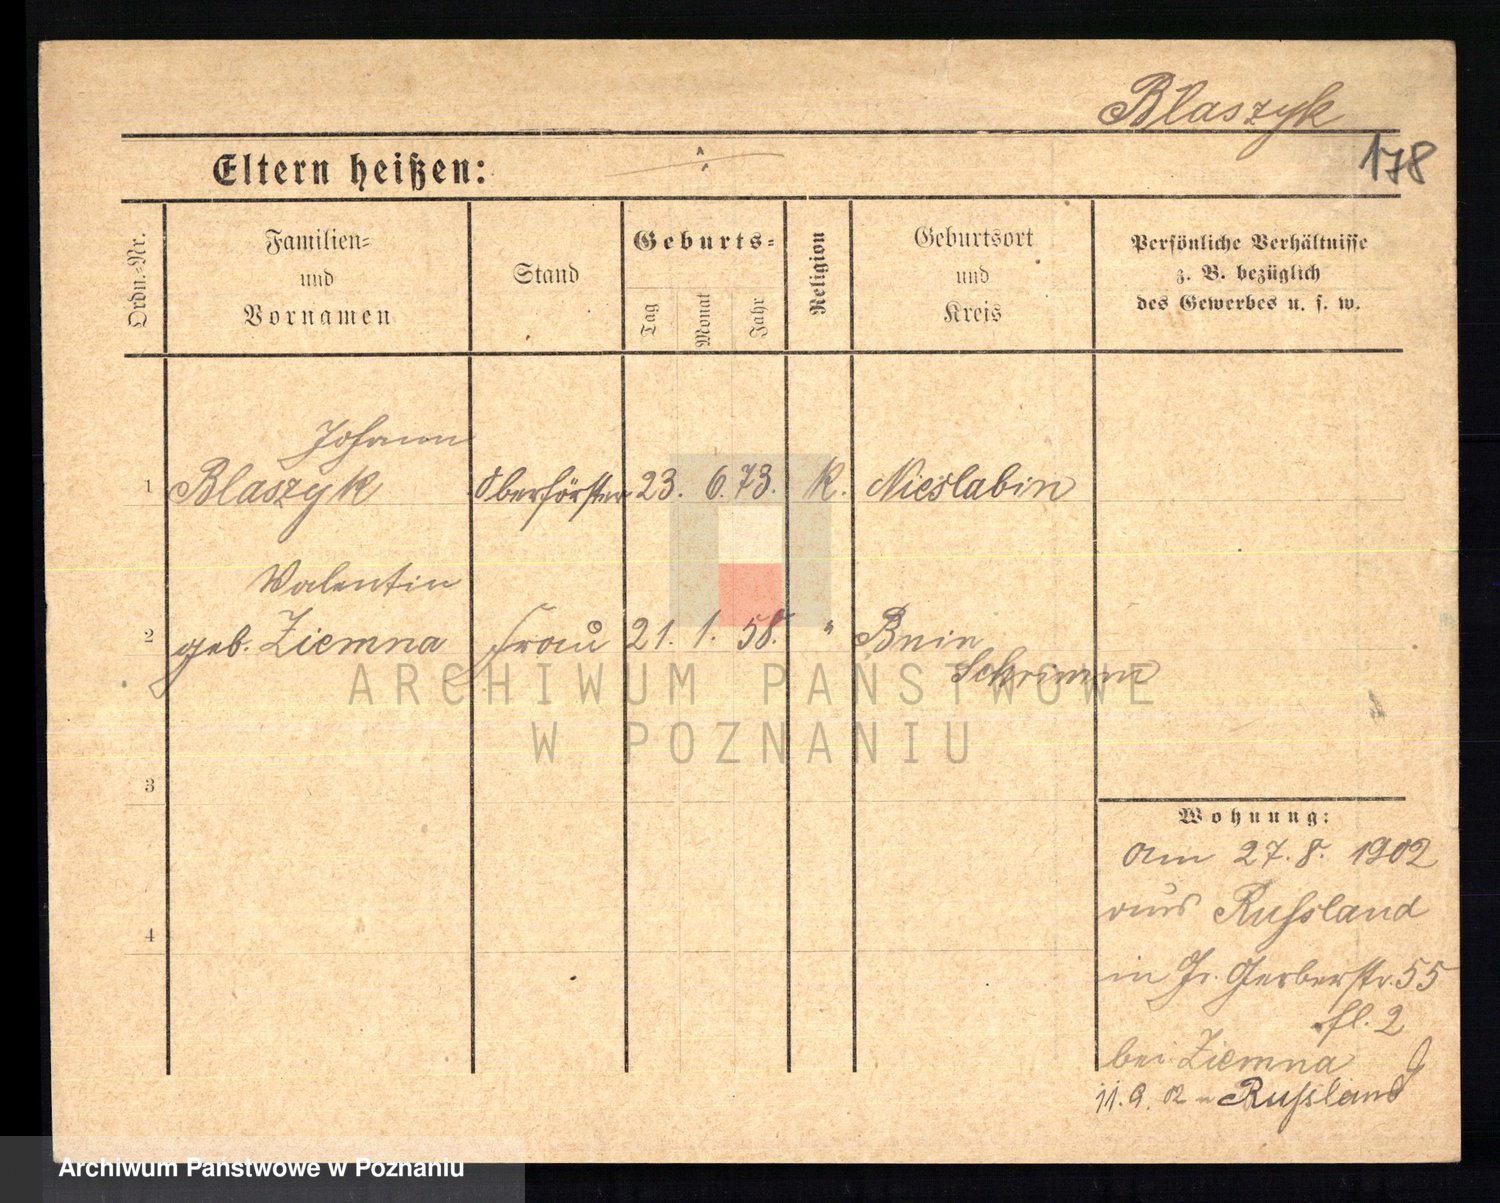 Blaszyk
178
Eltern heißen:
Ordn.-Nr.
Familien-
und
Vornamen
Stand
Geburts-
Tag
Monat
Jahr
Religion
Geburtsort
und
Kreis
Persönliche Verhältnisse
z. B. bezüglich
des Gewerbes u. s. w.
Johann
1 Blaszyk Oberförster 23. 6. 73. K. Nieslabin
Valentin
2 geb. Ziemna Frau 21. 1. 58. " Bnin
Schrimm
ARCHIWUM PAŃSTWOWE
W POZNANIU
3
Wohnung:
am 27. 8. 1902
aus Russland
4
in Gr. Gerberstr. 55
bei Ziemna
11. 9. 02 n Russland
Archiwum Państwowe w Poznaniu